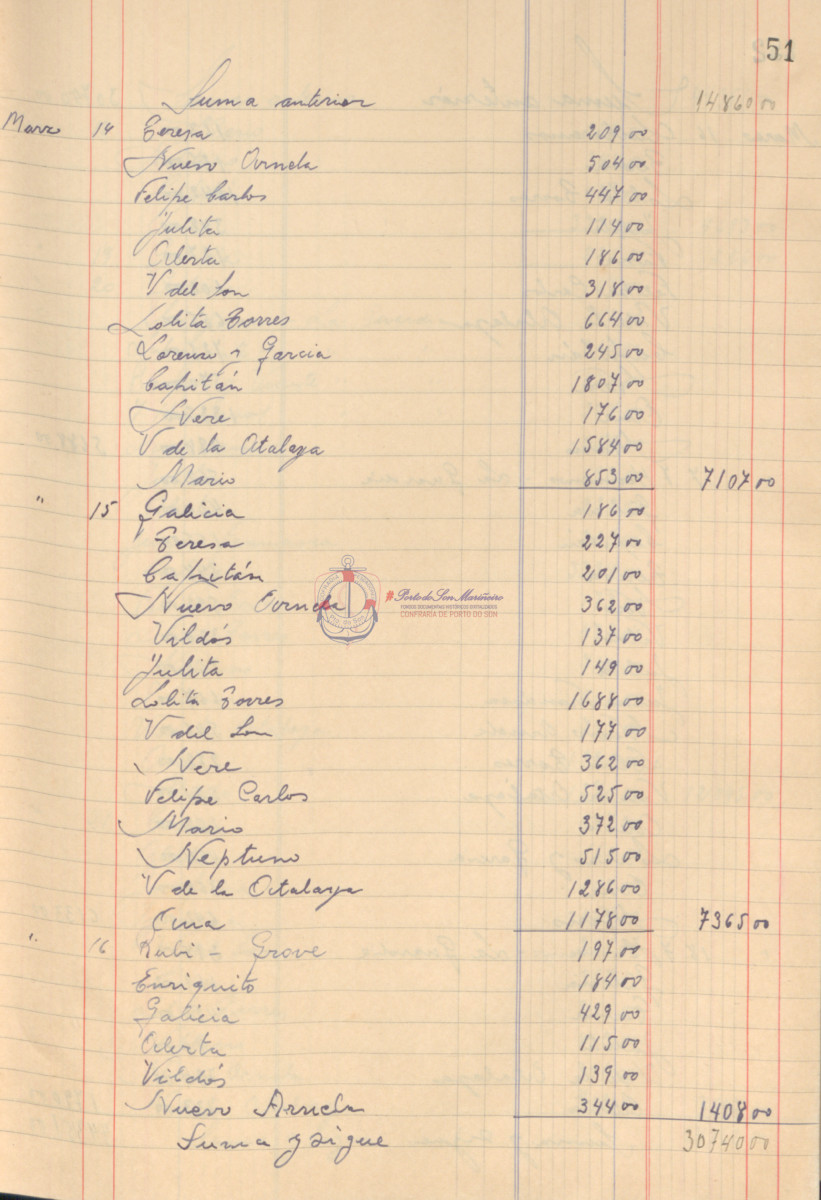 51
Suma anterior 14860 00
Marzo 14 Teresa 209 00
Nuevo Ornela 504 00
Felipe Carlos 447 00
Julita 114 00
Alerta 186 00
V del Son 318 00
Lolita Torres 664 00
Lorenzo y Garcia 245 00
Capitán 1807 00
Nere 176 00
V de la Atalaya 1584 00
Mario 853 00 7107 00
" 15 Galicia 186 00
Teresa 227 00
Capitán 201 00
Nuevo Ornela 362 00
Vildós 137 00
Julita 149 00
Lolita Torres 1688 00
V del Son 177 00
Nere 362 00
Felipe Carlos 525 00
Mario 372 00
Neptuno 515 00
V de la Atalaya 1286 00
1178 00 7365 00
" 16 Rubi - Grove 197 00
Enriquito 184 00
Galicia 429 00
Alerta 115 00
Vildós 139 00
Nuevo Arnela 344 00 1408 00
Suma y sigue 30740 00
# Porto do Son Mariñeiro
FONDOS DOCUMENTAIS HISTÓRICOS DIXITALIZADOS
CONFRARÍA DE PORTO DO SON